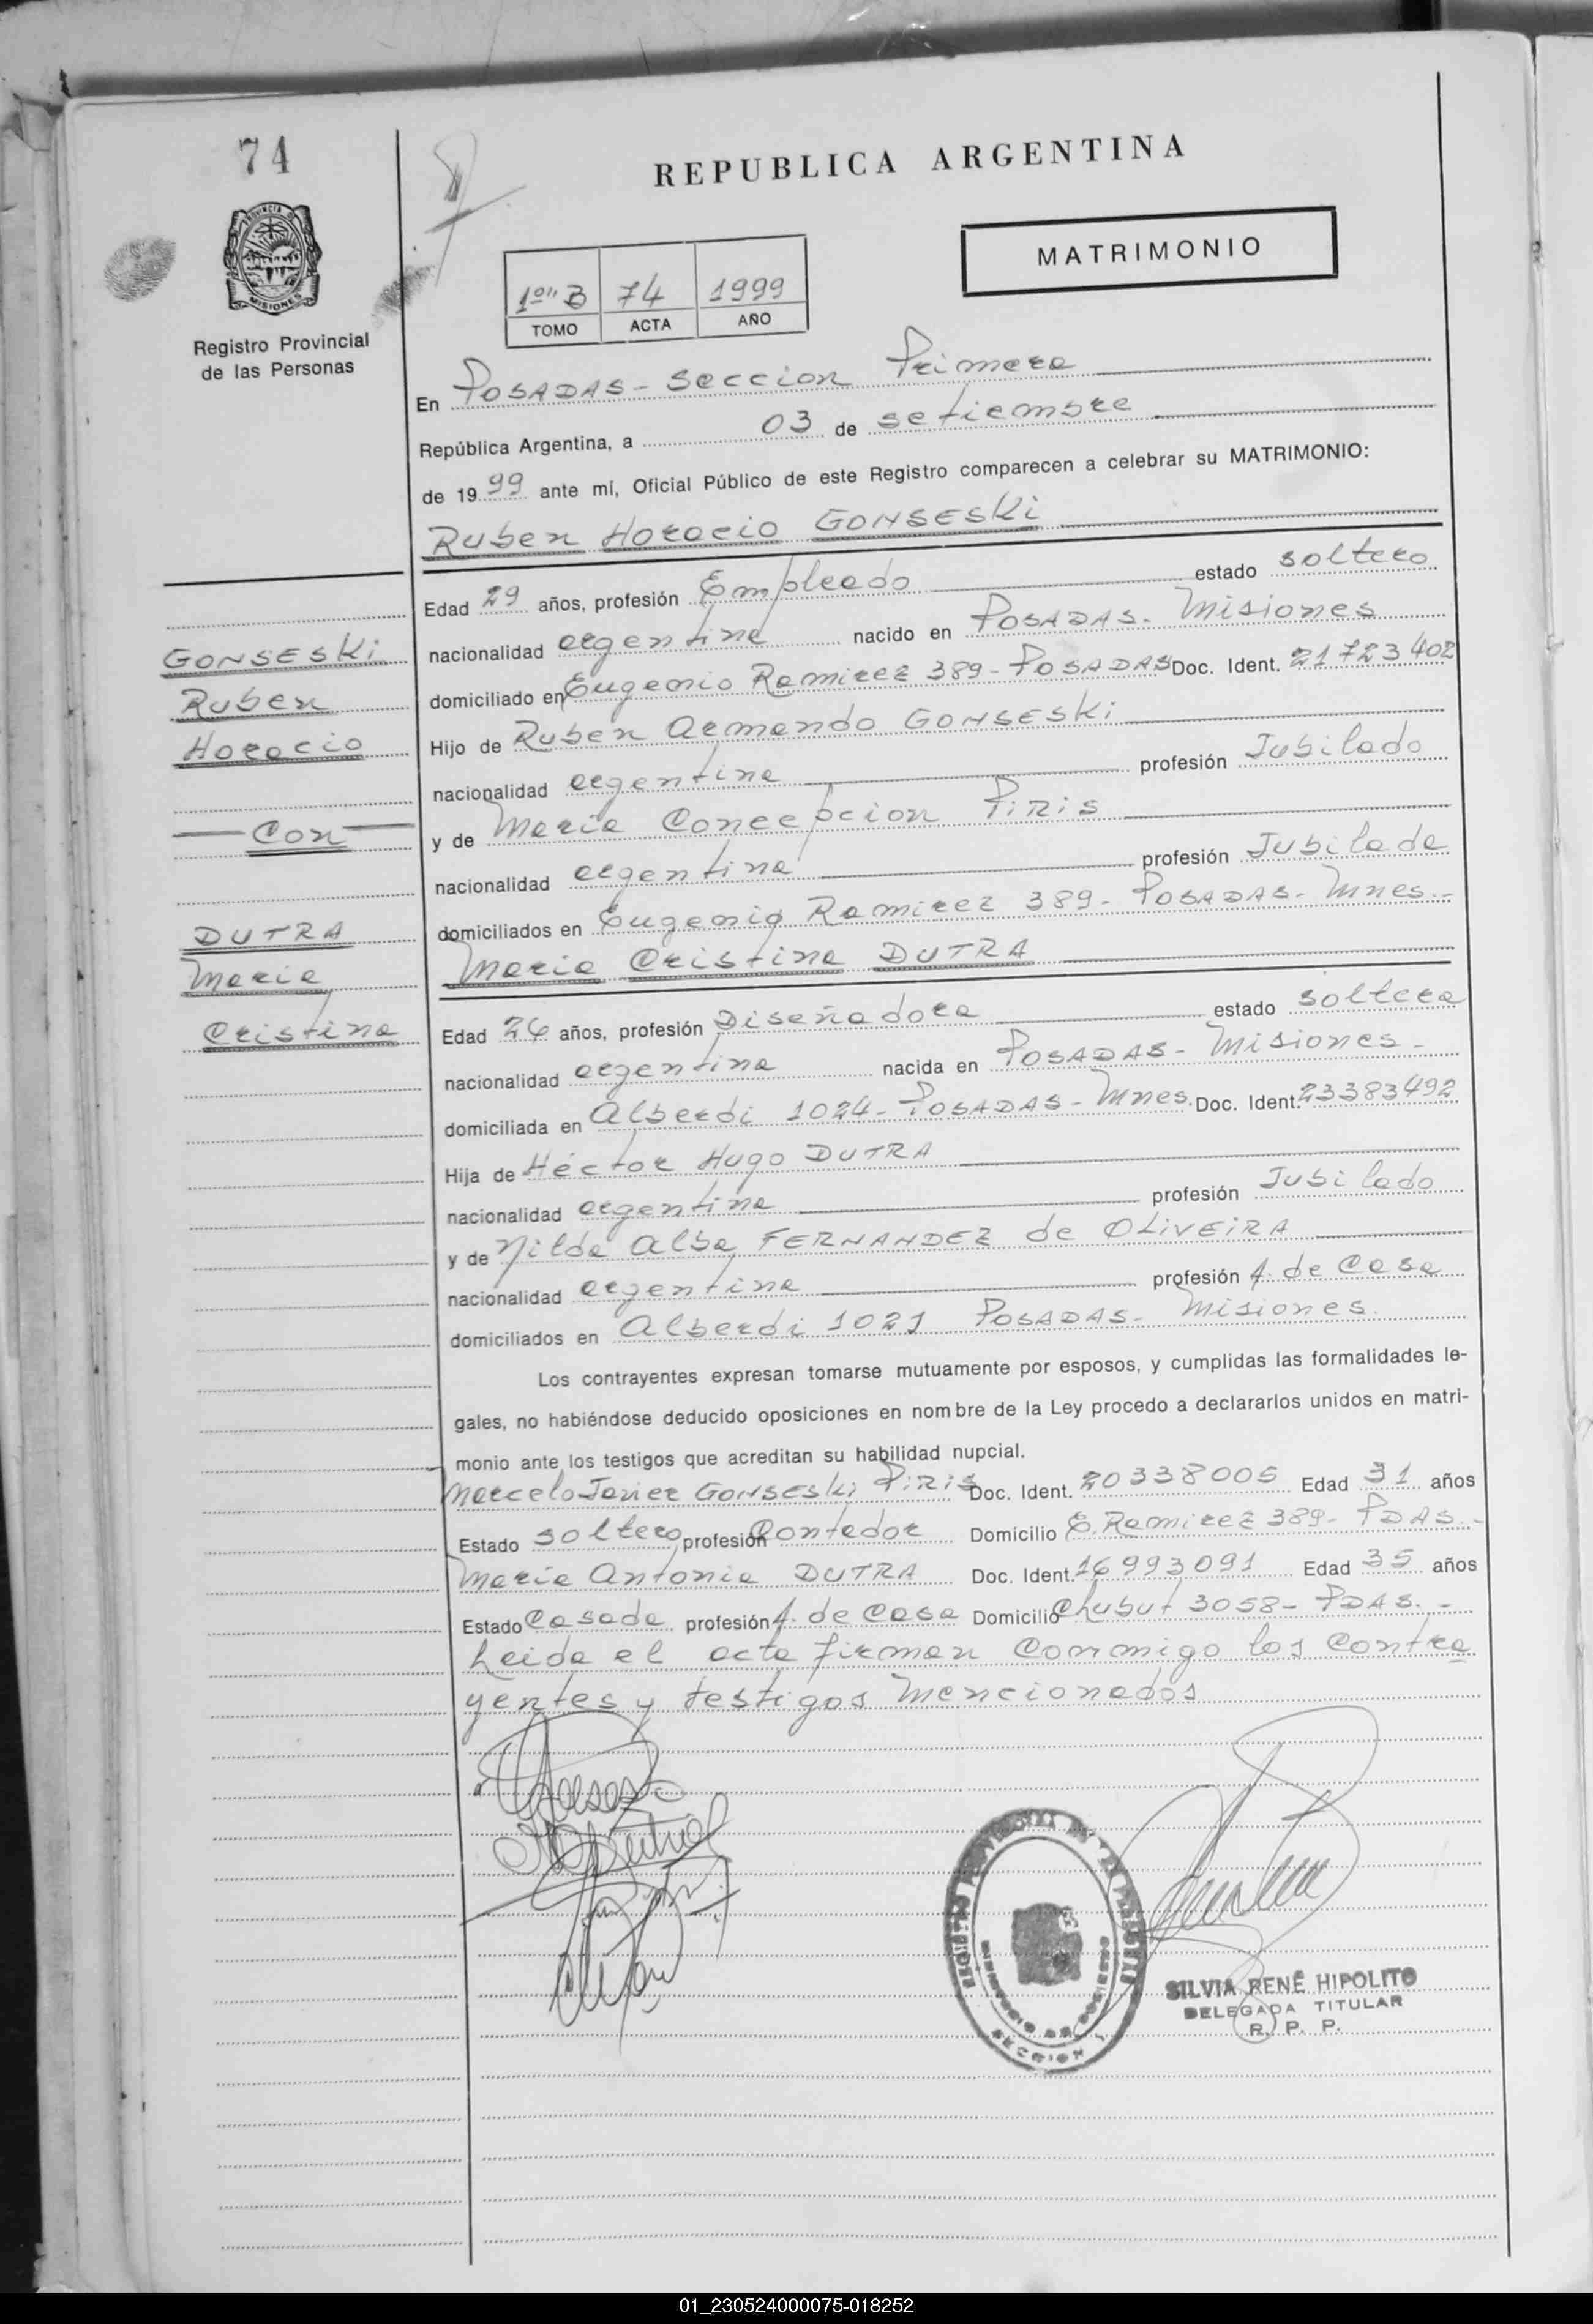 74
REPUBLICA ARGENTINA
MATRIMONIO
PROVINCIA DE
MISIONES
Registro Provincial
de las Personas
1º" B 74 1999
TOMO ACTA AÑO
En POSADAS - Seccion Primera
República Argentina, a 03 de setiembre
de 1999 ante mí, Oficial Público de este Registro comparecen a celebrar su MATRIMONIO:
Ruben Horacio GONSESKi
Edad 29 años, profesión Empleado estado soltero
nacionalidad argentina nacido en POSADAS - Misiones
domiciliado en Eugenio Ramirez 389 - POSADAS Doc. Ident. 21723402
Hijo de Ruben Armando GONSESKi
nacionalidad argentina profesión Jubilado
y de Maria Concepcion PiRiS
nacionalidad argentina profesión Jubilada
domiciliados en Eugenio Ramirez 389 - POSADAS - Mnes.-
Maria Cristina DUTRA
GONSESKi
Ruben
Horacio
Con
DUTRA
Maria
Cristina
Edad 26 años, profesión Diseñadora estado soltera
nacionalidad argentina nacida en POSADAS - Misiones -
domiciliada en Alberdi 1024 - POSADAS - Mnes. Doc. Ident. 23383492
Hija de Héctor Hugo DUTRA
nacionalidad argentina profesión Jubilado
y de Nilda Alba FERNANDEZ de OLiVEiRA
nacionalidad argentina profesión A. de Casa
domiciliados en Alberdi 1021 POSADAS - Misiones.
Los contrayentes expresan tomarse mutuamente por esposos, y cumplidas las formalidades le-
gales, no habiéndose deducido oposiciones en nombre de la Ley procedo a declararlos unidos en matri-
monio ante los testigos que acreditan su habilidad nupcial.
Marcelo Javier GONSESki PiRiS Doc. Ident. 20338005 Edad 31 años
Estado soltero profesión Contador Domicilio E. Ramirez 389 - PDAS.-
Maria Antonia DUTRA Doc. Ident. 16993091 Edad 35 años
Estado Casada profesión A. de Casa Domicilio Chubut 3058 - PDAS. -
Leida el acta firman conmigo los contra
yentes y testigos mencionados
SECCION 1
SILVIA RENÉ HIPOLITO
DELEGADA TITULAR
R. P. P.
01_230524000075-018252